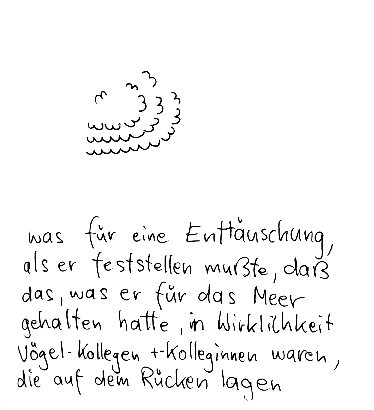 was für eine Enttäuschung,
als er feststellen mußte, daß
das, was er für das Meer
gehalten hatte, in Wirklichkeit
Vögel-Kollegen +-Kolleginnen waren,
die auf dem Rücken lagen